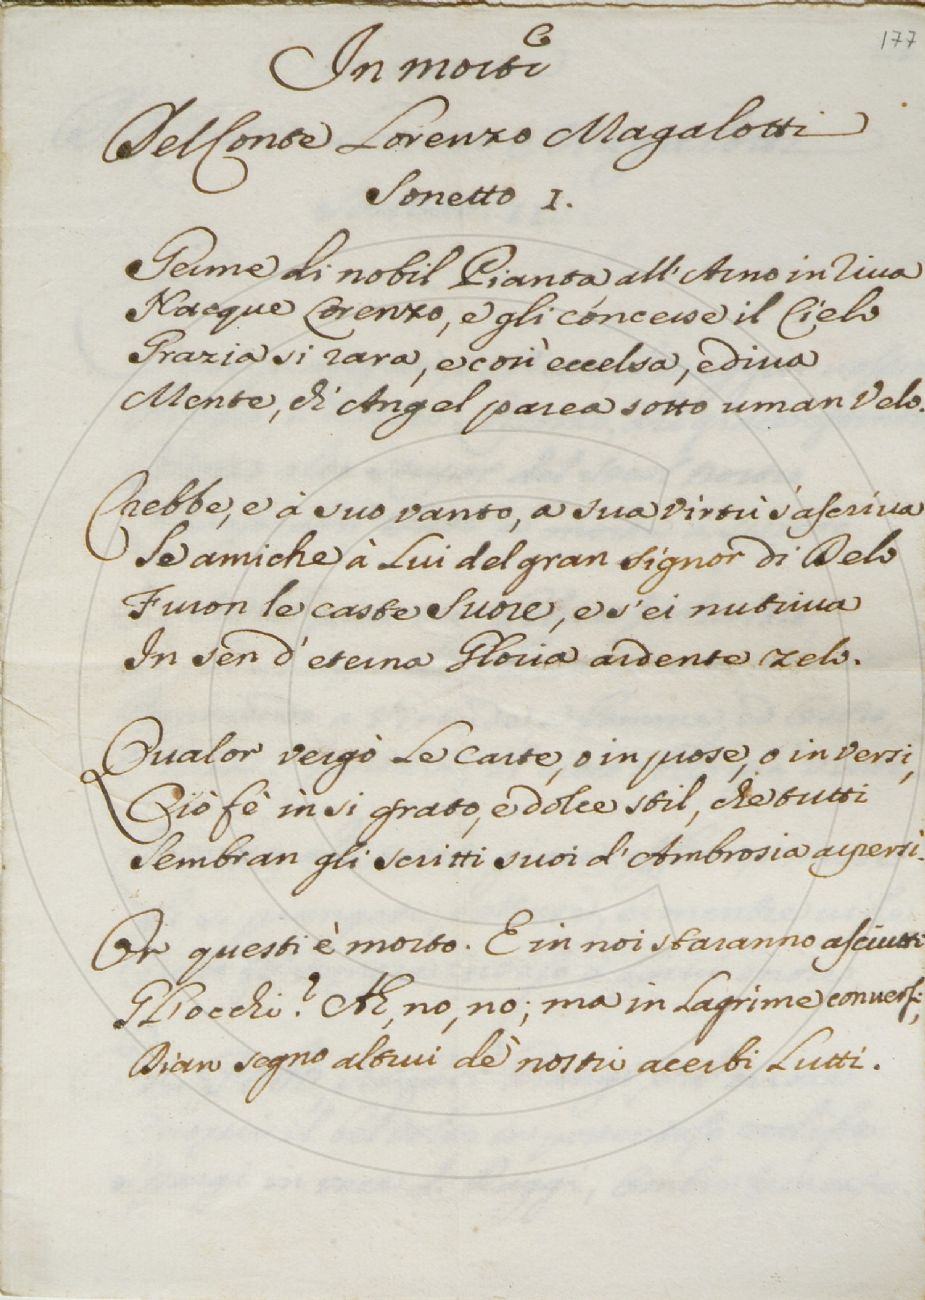 177
In morte
Del Conte Lorenzo Magalotti
Sonetto I.
Germe di nobil Pianta all'Arno in riva
Nacque Lorenzo, e gli concesse il Cielo
Grazia si rara, e così eccelsa, e diva
Mente, ch'Angel parea sotto uman Velo.
Crebbe, e à suo vanto, a sua virtù s'ascriva
Se amiche à Lui del gran signor di Delo
Furon le caste Suore, e s'ei nutriva
In sen d'eterna Gloria ardente zelo.
Qualor vergò le carte, o in prose, o in versi,
Ciò fè in si grato, e dolce stil, che tutti
Sembran gli scritti suoi d'Ambrosia aspersi.
Or questi è morto. E in noi staranno asciutti
Gl'occhi? Ah, no, no; ma in Lagrime conversi,
Dian segno altrui de' nostri acerbi Lutti.